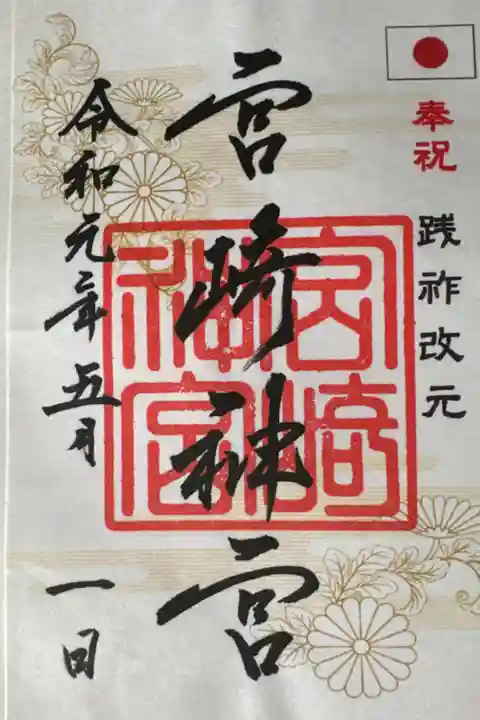 奉祝 践祚改元
宮崎神宮
宮崎
神宮
令和元年五月一日